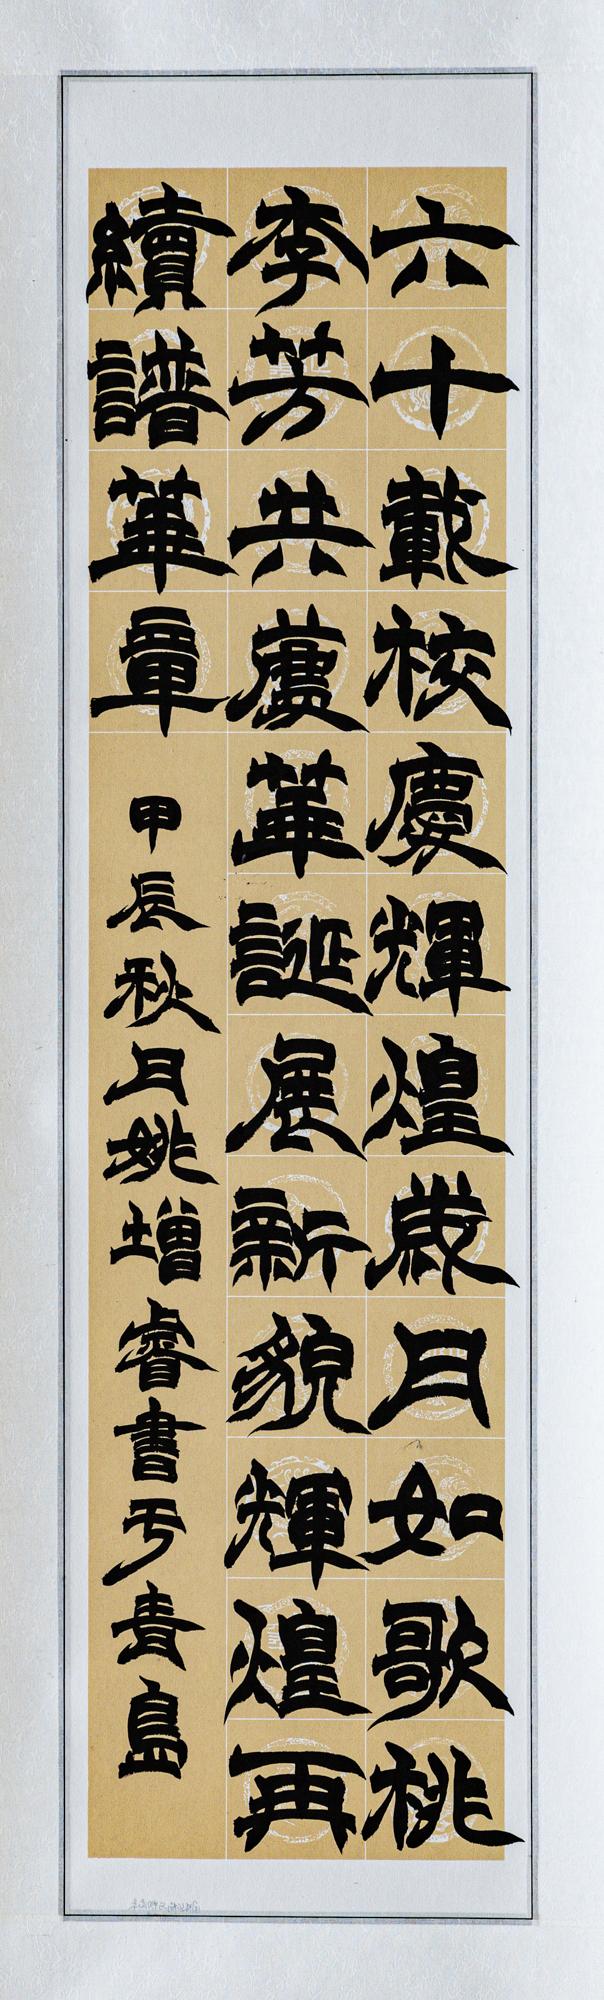 六十載校慶輝煌歲月如歌桃
李芳共薈華誕展新貌輝煌再
續譜華章
甲辰秋月姚增睿書于青島